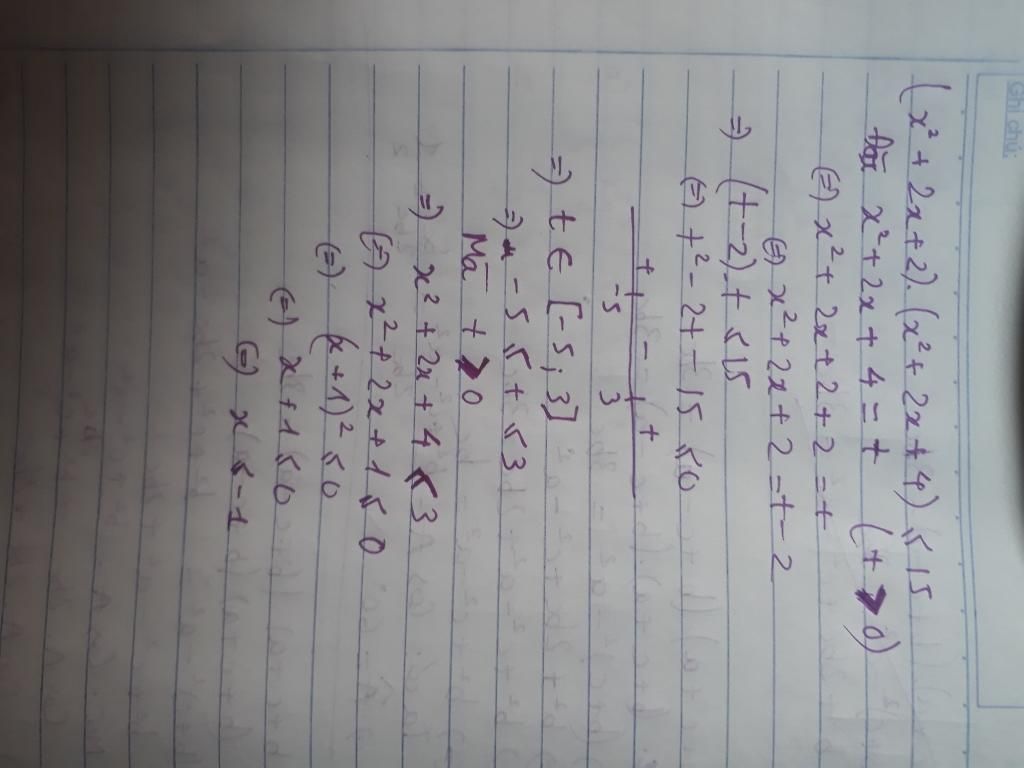 Ghi chú:
(x² + 2x + 2). (x² + 2x + 4) ≤ 15
Đặt x² + 2x + 4 = t (t > 0)
(=) x² + 2x + 2 + 2 = t
(=) x² + 2x + 2 = t - 2
=) (t - 2) t ≤ 15
(=) t² - 2t - 15 ≤ 0
+ - +
-5 3
=) t ∈ [-5; 3]
=) -5 ≤ t ≤ 3
Mà t > 0
=) x² + 2x + 4 ≤ 3
(=) x² + 2x + 1 ≤ 0
(=) (x + 1)² ≤ 0
(=) x + 1 ≤ 0
(=) x ≤ -1